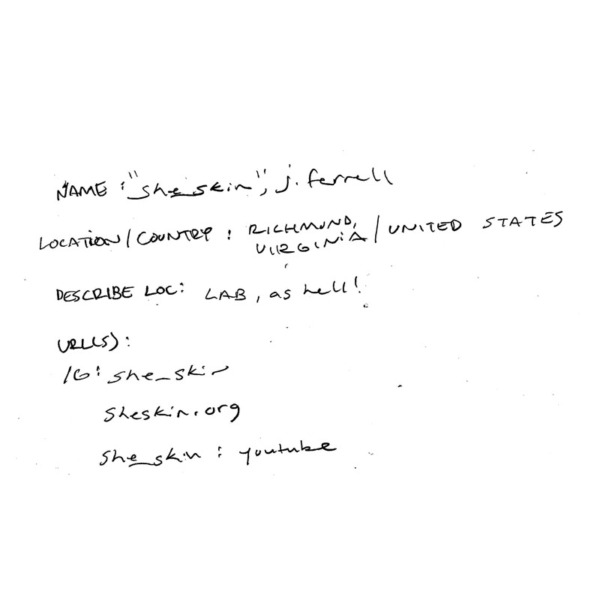 NAME: "she_skin", j. ferrell
LOCATION/COUNTRY: RICHMOND,
VIRGINIA/UNITED STATES
DESCRIBE LOC: LAB, as hell!
URL(S):
IG: she_skin
sheskin.org
she_skin: youtube